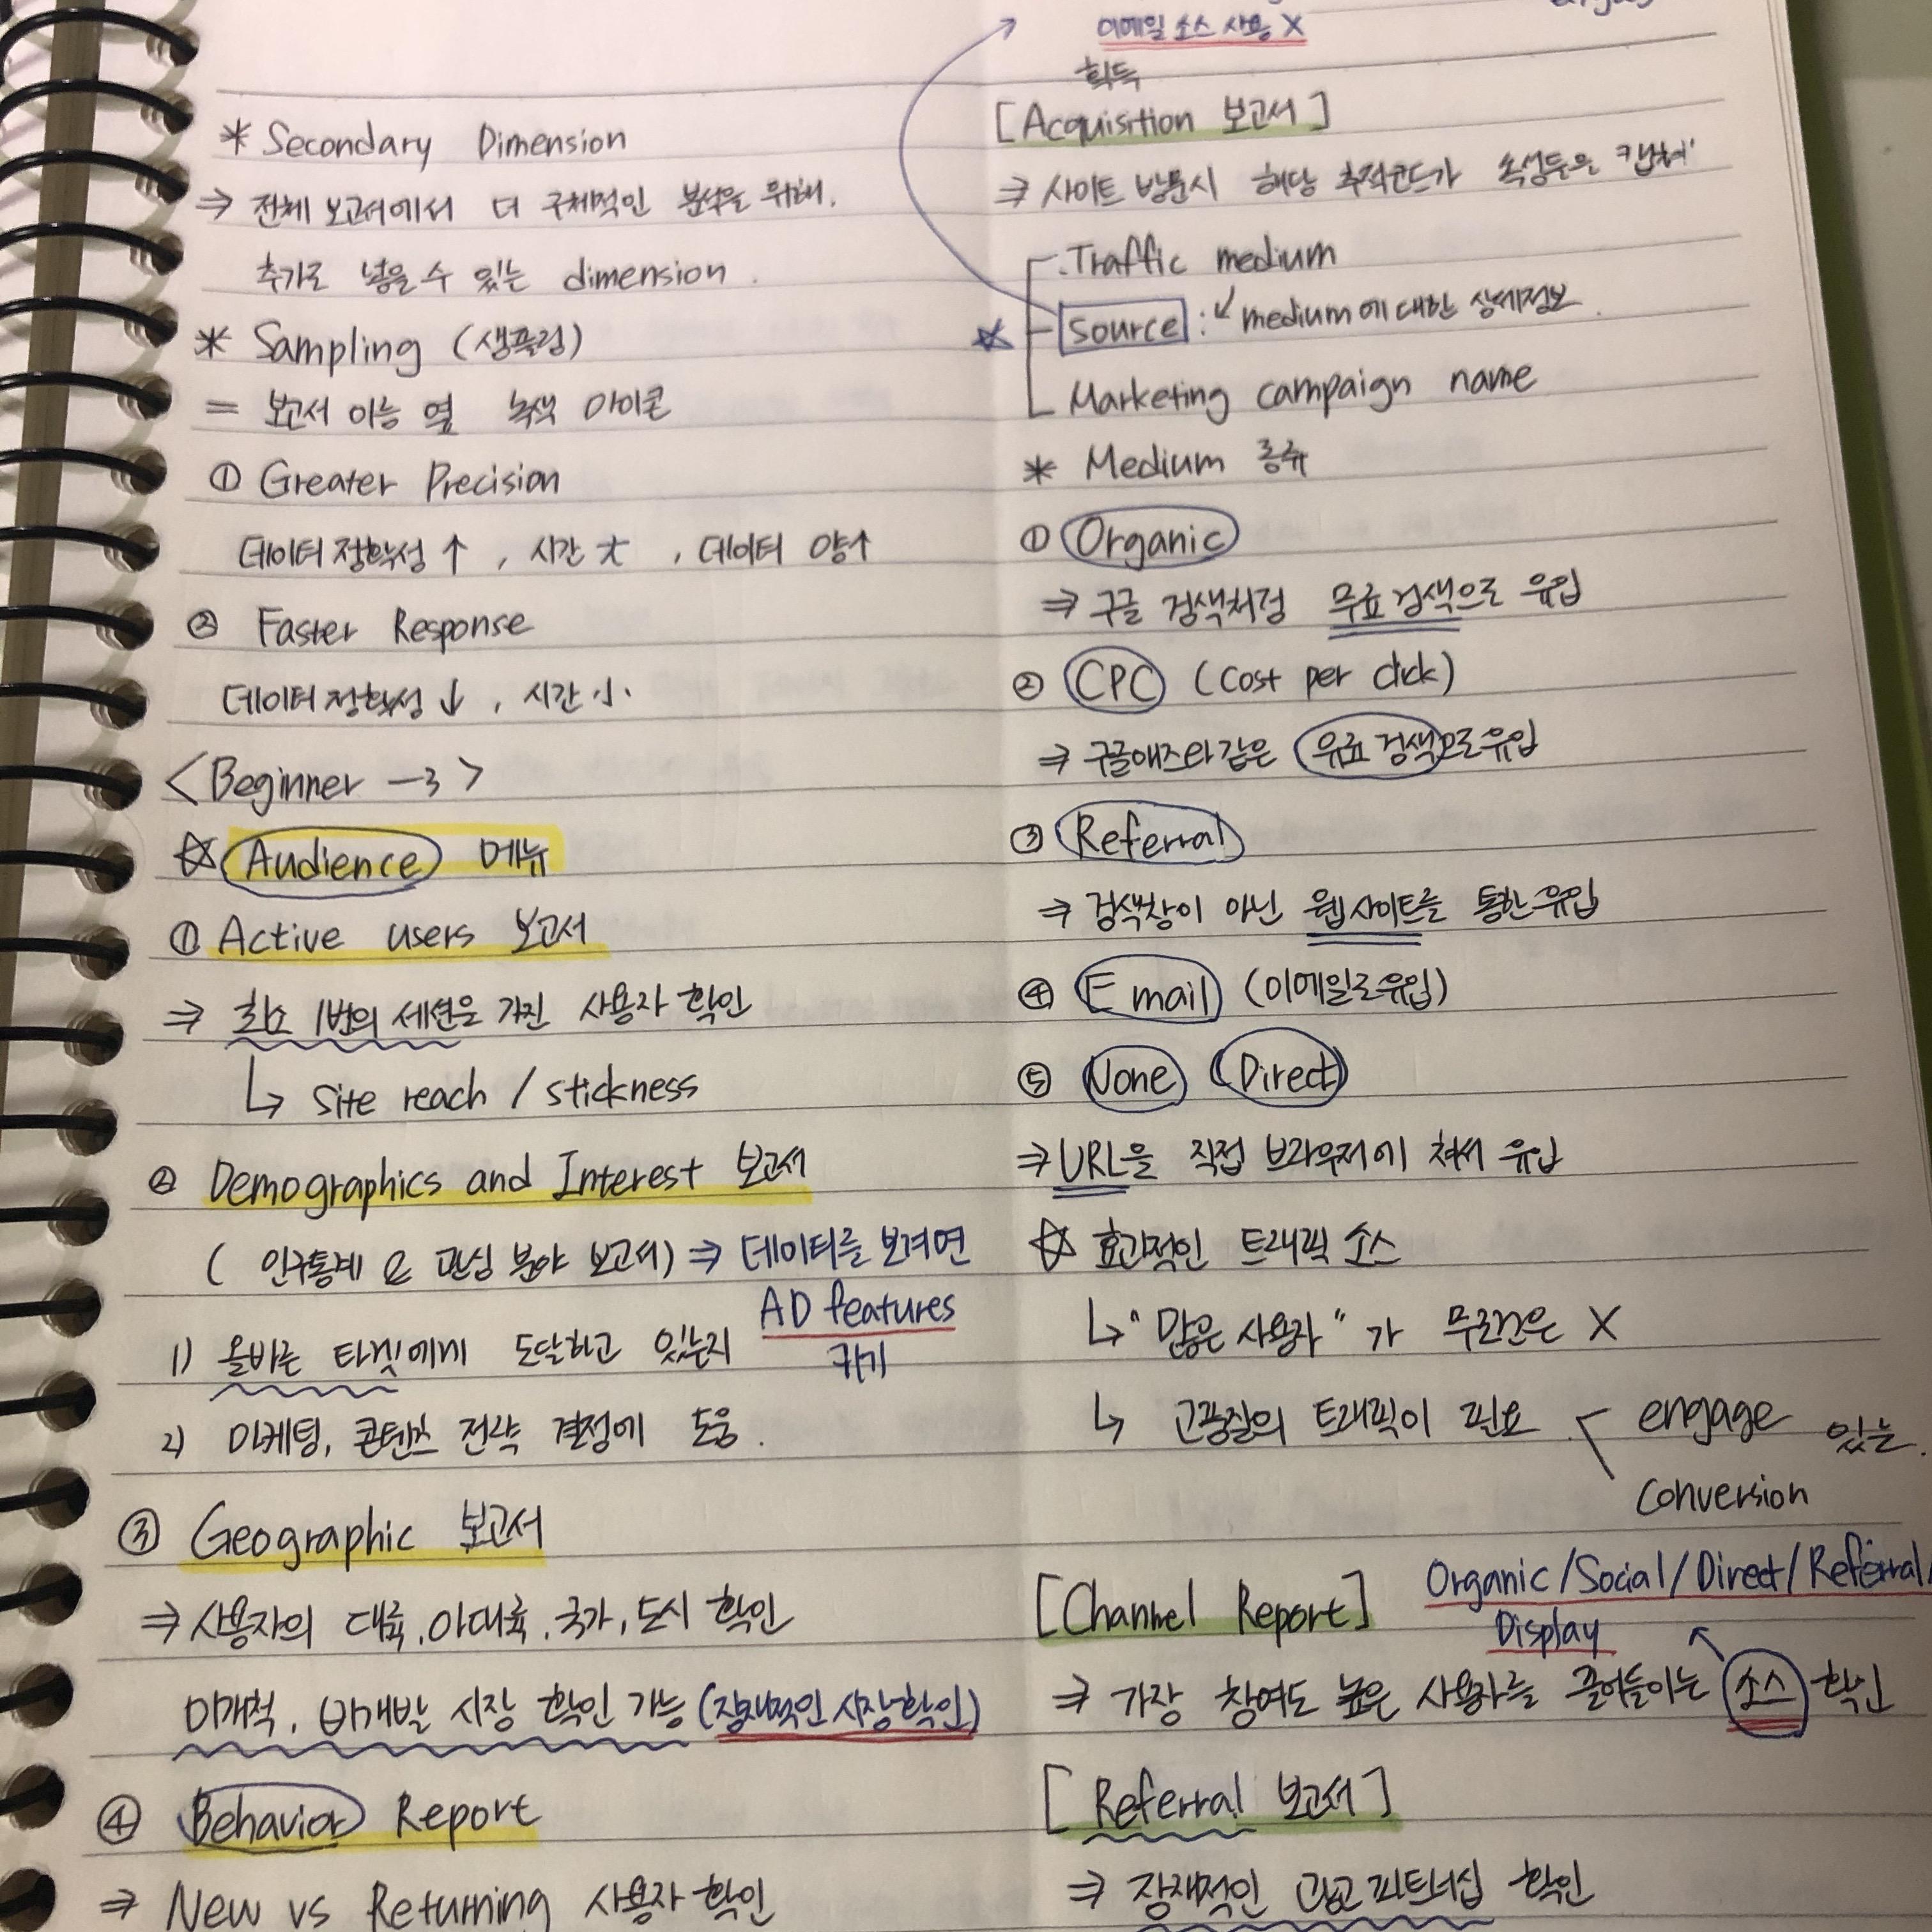 * Secondary Dimension
⇒ 전체 보고서에서 더 구체적인 분석을 위해.
추가로 넣을 수 있는 dimension.
* Sampling (샘플링)
= 보고서 이능 옆 녹색 아이콘
① Greater Precision
데이터 정확성 ↑, 시간 大, 데이터 양↑
② Faster Response
데이터 정확성 ↓, 시간 小.
<Beginner -3>
☆ Audience 메뉴
① Active users 보고서
⇒ 최소 1번의 세션을 가진 사용자 확인
↳ Site reach / stickness
② Demographics and Interest 보고서
(인구통계 & 관심 분야 보고서) ⇒ 데이터를 보려면
AD features
키기
1) 올바른 타겟에게 도달하고 있는지
2) 마케팅, 콘텐츠 전략 결정에 도움.
③ Geographic 보고서
⇒ 사용자의 대륙, 아대륙, 국가, 도시 확인
미개척, 미개발 시장 확인 가능 (잠재적인 시장확인)
④ Behavior Report
⇒ New vs Returning 사용자 확인
이메일 소스 사용 X
획득
[Acquisition 보고서]
⇒ 사이트 방문시 해당 추적코드가 속성들을 캡쳐
Traffic medium
☆ Source : medium에 대한 상세정보.
Marketing campaign name
* Medium 종류
① Organic
⇒ 구글 검색처럼 무료 검색으로 유입
② CPC (Cost per click)
⇒ 구글애즈와 같은 유료 검색으로 유입
③ Referral
⇒ 검색창이 아닌 웹사이트를 통한 유입
④ Email (이메일로 유입)
⑤ None (Direct)
⇒ URL을 직접 브라우저에 쳐서 유입
☆ 효과적인 트래픽 소스
↳ "많은 사용자"가 무조건은 X
↳ 고품질의 트래픽이 필요 < engage 있는.
Conversion
[Channel Report] Organic/Social/Direct/Referral/
Display
⇒ 가장 참여도 높은 사용자를 끌어들이는 소스 확인
[Referral 보고서]
⇒ 잠재적인 광고 파트너십 확인